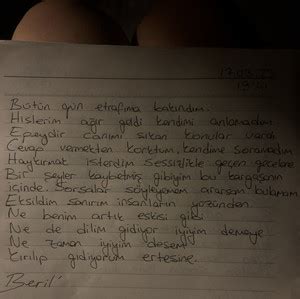 17.03.22
Bütün gün etrafıma bakındım.
Hislerim ağır geldi kendimi anlamadım
Epeydir canımı sıkan konular vardı
Cevap vermekten korktum, kendime soramadım.
Haykırmak isterdim sessizlikle geçen gecelere
Bir şeyler kaybetmiş gibiyim bu kargaşanın
içinde. Sorsalar söyleyemem ararsam bulamam
Eksildim sanırım insanların yüzünden.
Ne benim artık eskisi gibi
Ne de dilim gidiyor iyiyim demeye
Ne zaman iyiyim desem
Kırılıp gidiyorum ertesine.
Beril